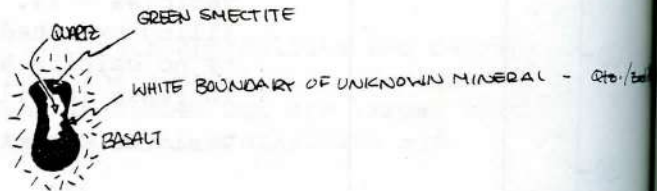 GREEN SMECTITE
QUARTZ
WHITE BOUNDARY OF UNKNOWN MINERAL - Qtz./
BASALT